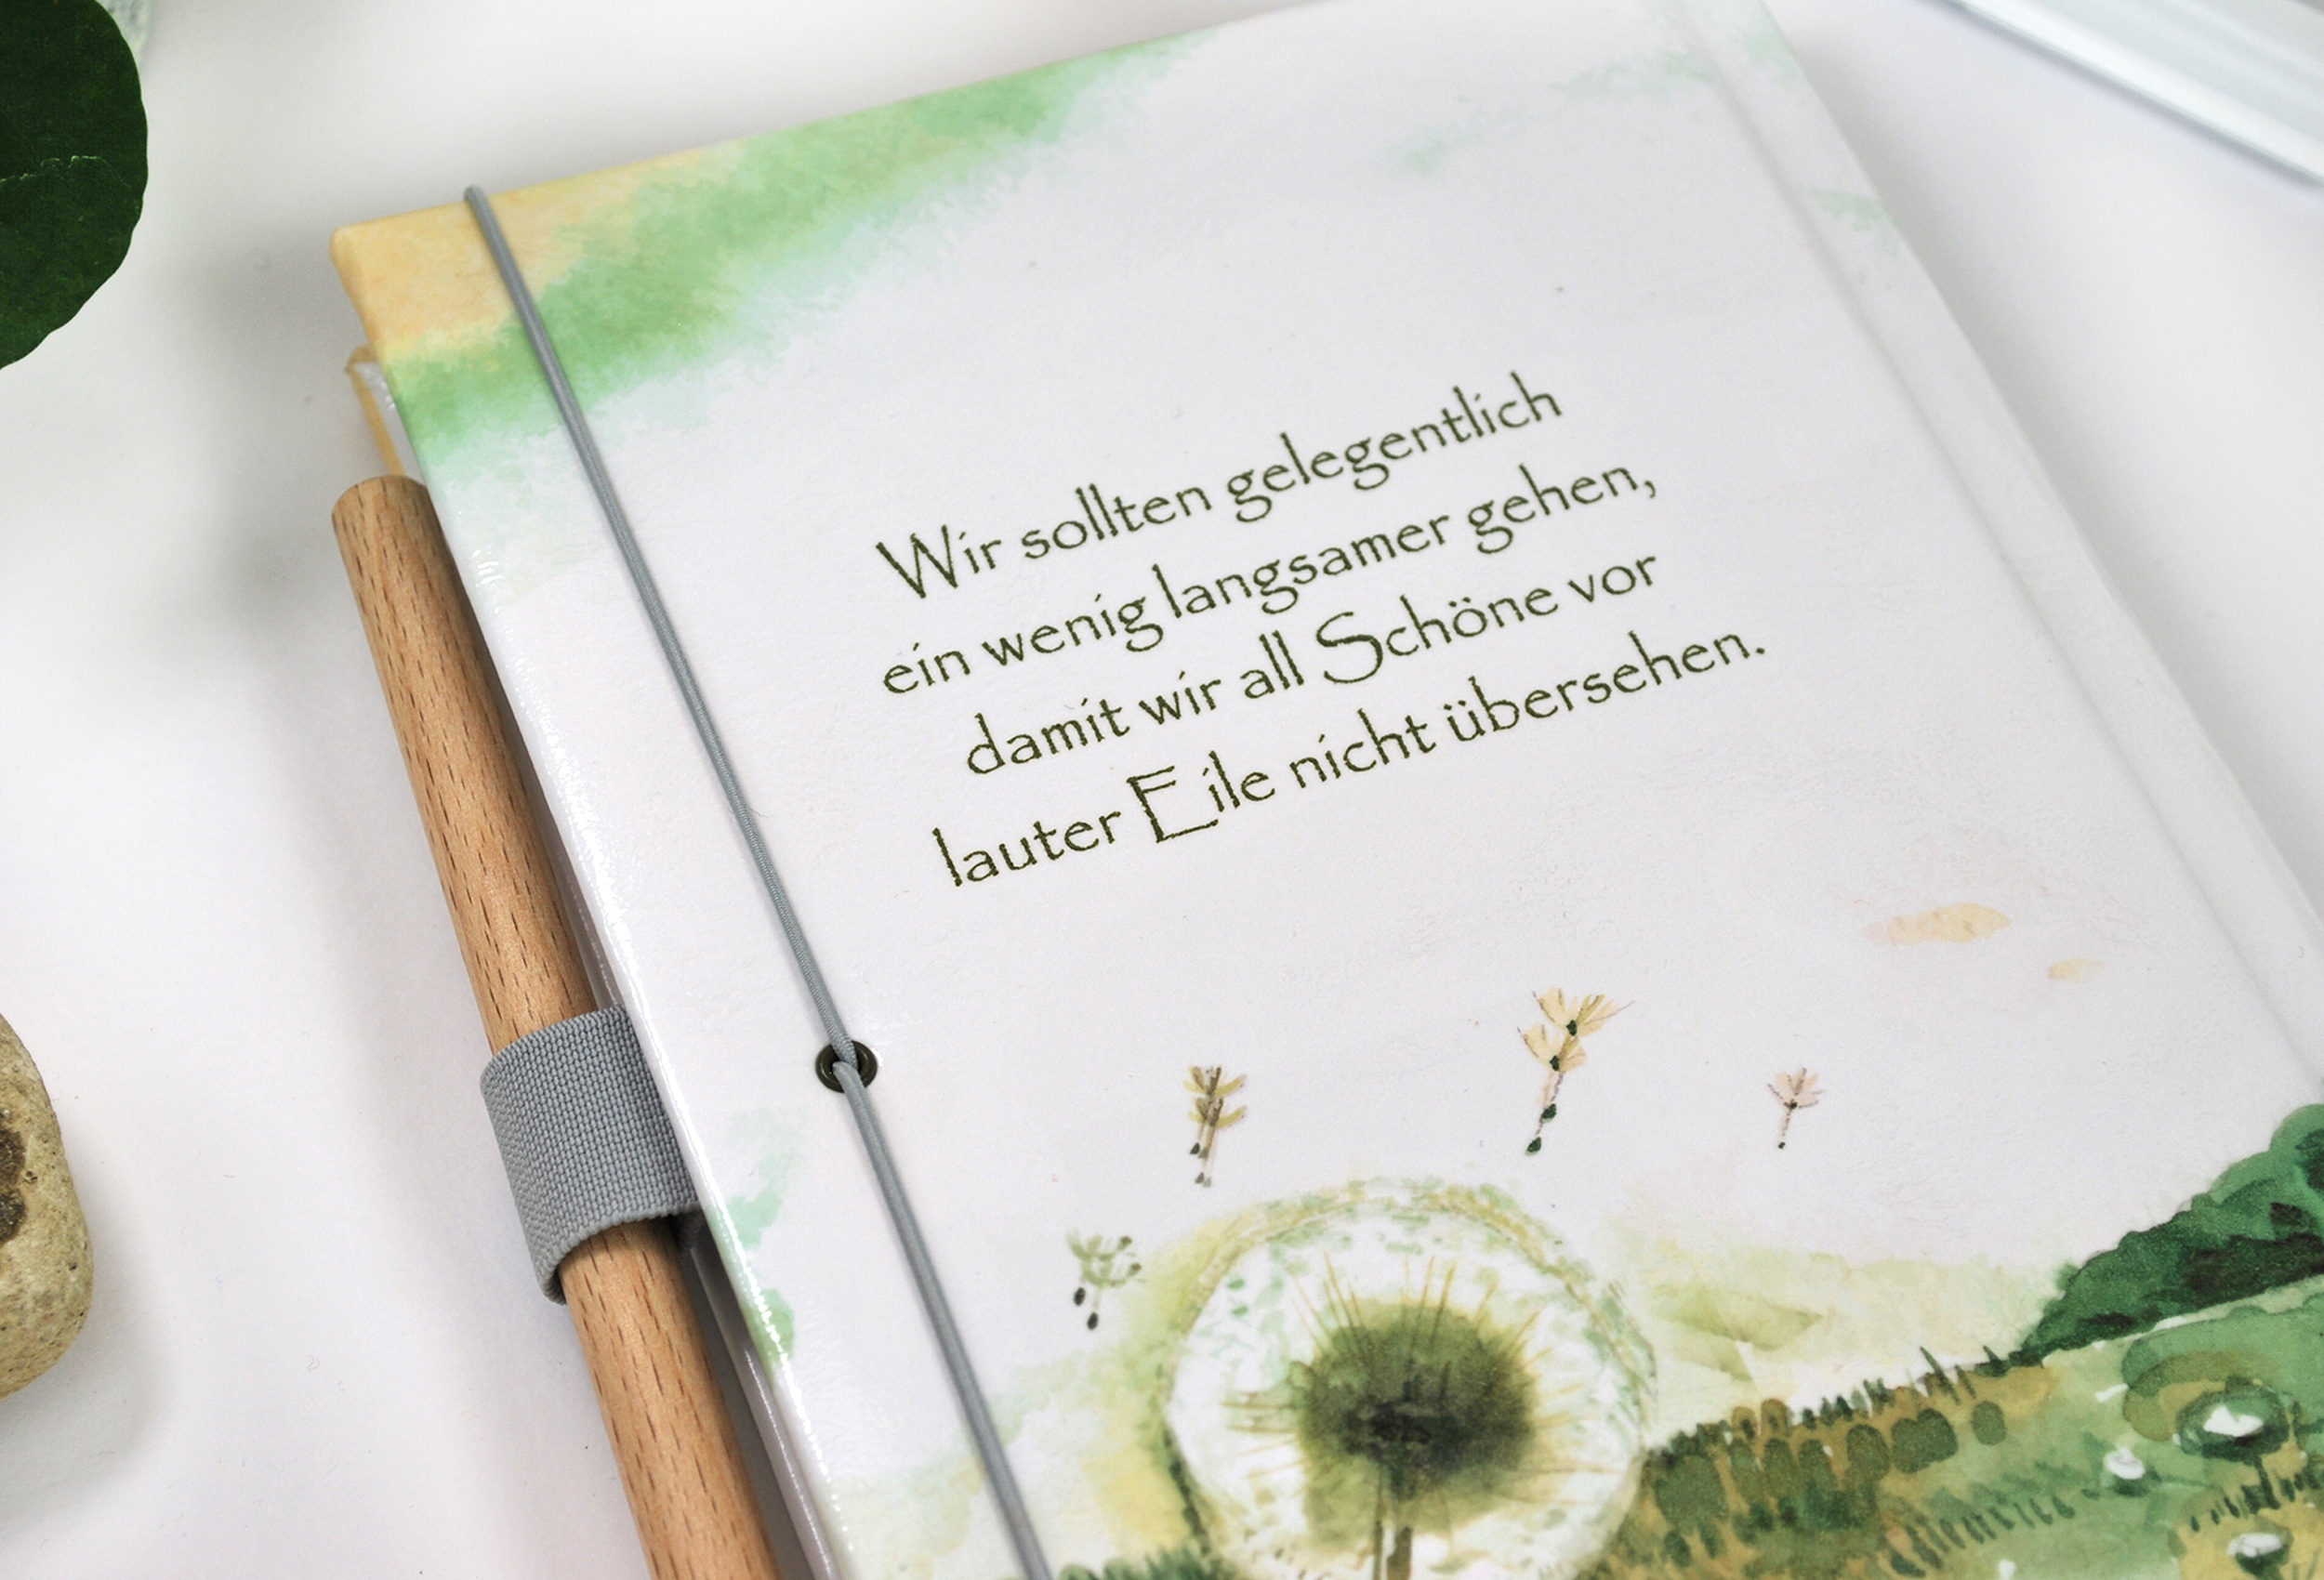 Wir sollten gelegentlich
ein wenig langsamer gehen,
damit wir all Schöne vor
lauter Eile nicht übersehen.